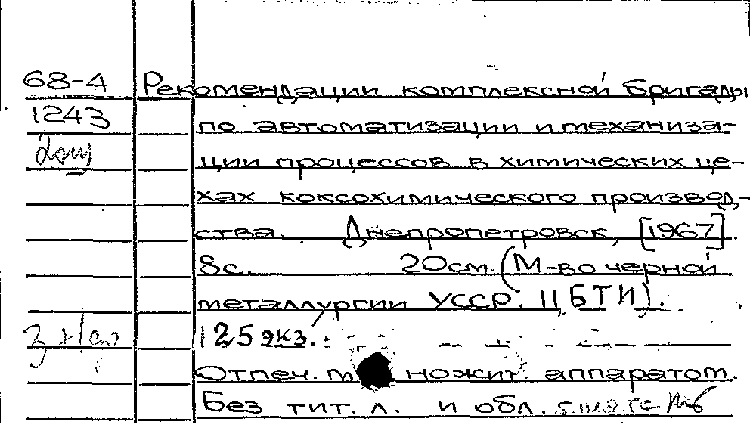 68-4 Рекомендации комплексной бригады
1243 по автоматизации и механиза-
ции процессов в химических це-
хах коксохимического производ-
ства. Днепропетровск, [1967].
8с. 20см. (М-во черной
металлургии УССР. ЦБТИ).
125 экз.
Отпеч. ножит. аппаратом.
Без тит. л. и обл.